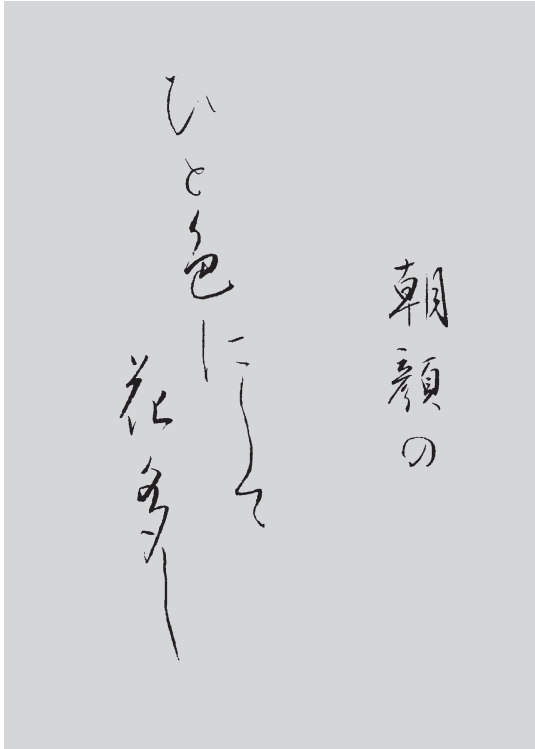 朝顔の
ひと色にして
花多し